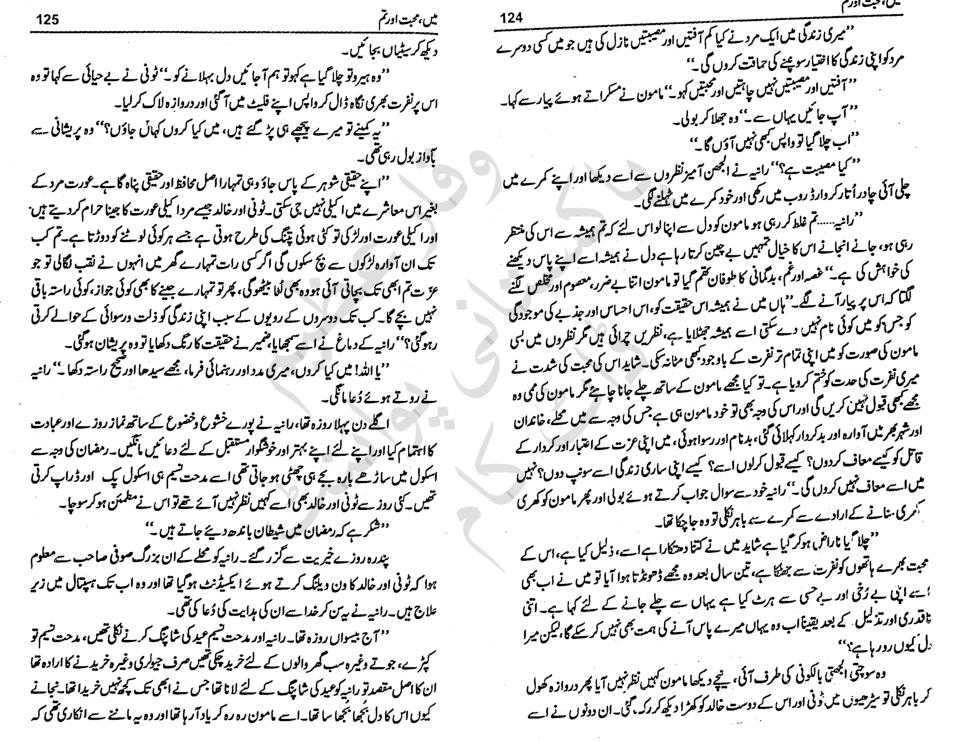 میں، محبت اور تم
124
’’میری زندگی میں ایک مرد نے کیا کم آفتیں اور مصیبتیں نازل کی ہیں جو میں کسی دوسرے
مرد کو اپنی زندگی کا اختیار سوچنے کی حماقت کروں گی۔‘‘
’’آفتیں اور مصیبتیں نہیں چاہتیں اور محبتیں کہو۔‘‘ مامون نے مسکراتے ہوئے پیار سے کہا۔
’’آپ جائیں یہاں سے۔‘‘ وہ جھلا کر بولی۔
’’اب چلا گیا تو واپس کبھی نہیں آؤں گا۔‘‘
’’کیا مصیبت ہے؟‘‘ رانیہ نے الجھن آمیز نظروں سے اسے دیکھا اور اپنے کمرے میں
چلی آئی چادر اُتار کر وارڈ روب میں رکھی اور خود کمرے میں ٹہلنے لگی۔
’’رانیہ...... تم غلط کر رہی ہو مامون کو دل سے اپنا لو اس لئے کہ تم ہمیشہ سے اس کی منتظر
رہی ہو، جانے انجانے اس کا خیال تمہیں بے چین کرتا رہا ہے دل نے ہمیشہ اسے اپنے پاس دیکھنے
کی خواہش کی ہے۔‘‘ غصہ اور غم، بدگمانی کا طوفان تھم گیا تو مامون اتنا بے ضرر، معصوم اور مخلص لگنے
لگتا کہ اس پر پیار آنے لگے۔ ’’ہاں میں نے ہمیشہ اس حقیقت کو، اس احساس اور جذبے کی موجودگی
کو جس کو میں کوئی نام نہیں دے سکتی اسے ہمیشہ جھٹلایا ہے، نظریں چرائی ہیں مگر نظروں میں بسی
مامون کی صورت کو میں اپنی تمام تر نفرت کے باوجود بھی مٹا نہ سکی۔ شاید اس کی محبت کی شدت نے
میری نفرت کی حدت کو ختم کر دیا ہے۔ تو کیا مجھے مامون کے ساتھ چلے جانا چاہئے مگر مامون کی ممی وہ
مجھے کبھی قبول نہیں کریں گی اور اس کی وجہ بھی تو خود مامون ہی ہے جس کی وجہ سے میں محلے، خاندان
اور شہر بھر میں آوارہ اور بدکردار کہلائی گئی، بدنام اور رسوا ہوئی، میں اپنی عزت کے اعتبار اور کردار کے
قاتل کو کیسے معاف کر دوں؟ کیسے قبول کر لوں اسے؟ کیسے اپنی ساری زندگی اسے سونپ دوں؟ نہیں
میں اسے معاف نہیں کروں گی۔‘‘ رانیہ خود سے سوال جواب کرتے ہوئے بولی اور پھر مامون کو کھری
کھری سنانے کے ارادے سے کمرے سے باہر نکلی تو وہ جا چکا تھا۔
’’چلا گیا ناراض ہو کر گیا ہے شاید میں نے کتنا دھتکارا ہے اسے، ذلیل کیا ہے، اس کے
محبت بھرے ہاتھوں کو نفرت سے جھٹکا ہے، تین سال بعد وہ مجھے ڈھونڈتا ہوا آیا تو میں نے اب بھی
اسے اپنی بے رخی اور بے حسی سے ہرٹ کیا ہے یہاں سے چلے جانے کے لئے کہا ہے۔ اتنی
ناقدری اور تذلیل کے بعد یقیناً اب وہ یہاں میرے پاس آنے کی ہمت بھی نہیں کر سکے گا، لیکن میرا
دل کیوں رو رہا ہے؟‘‘
وہ سوچتی الجھتی بالکونی کی طرف آئی، نیچے دیکھا مامون کہیں نظر نہیں آیا پھر دروازہ کھول
کر باہر نکلی تو سیڑھیوں میں ٹونی اور اس کے دوست خالد کو کھڑا دیکھ کر رک گئی۔ ان دونوں نے اسے
میں، محبت اور تم
125
دیکھ کر سیٹیاں بجائیں۔
’’وہ ہیرو تو چلا گیا ہے کہو تو ہم آ جائیں دل بہلانے کو۔‘‘ ٹونی نے بے حیائی سے کہا تو وہ
اس پر نفرت بھری نگاہ ڈال کر واپس اپنے فلیٹ میں آ گئی اور دروازہ لاک کر لیا۔
’’یہ کمینے تو میرے پیچھے ہی پڑ گئے ہیں، میں کیا کروں کہاں جاؤں؟‘‘ وہ پریشانی سے
بآواز بول رہی تھی۔
’’اپنے حقیقی شوہر کے پاس جاؤ وہی تمہارا اصل محافظ اور حقیقی پناہ گاہ ہے۔ عورت مرد کے
بغیر اس معاشرے میں اکیلی نہیں جی سکتی۔ ٹونی اور خالد جیسے مرد اکیلی عورت کا جینا حرام کر دیتے ہیں
اور اکیلی عورت اور لڑکی تو کٹی ہوئی پتنگ کی طرح ہوتی ہے جسے ہر کوئی لوٹنے کو دوڑتا ہے۔ تم کب
تک ان آوارہ لڑکوں سے بچ سکوں گی اگر کسی رات تمہارے گھر میں انہوں نے نقب لگالی تو جو
عزت تم ابھی تک بچاتی آئی ہو وہ بھی لُٹا بیٹھو گی، پھر تو تمہارے جینے کا بھی کوئی جواز، کوئی راستہ باقی
نہیں بچے گا۔ کب تک دوسروں کے رویوں کے سبب اپنی زندگی کو ذلت و رسوائی کے حوالے کرتی
رہو گی؟‘‘ رانیہ کے دماغ نے اسے سمجھایا، ضمیر نے حقیقت کا رنگ دکھایا تو وہ پریشان ہو گئی۔
’’یا اللہ! میں کیا کروں، میری مدد اور رہنمائی فرما، مجھے سیدھا اور صحیح راستہ دکھا۔‘‘ رانیہ
نے روتے ہوئے دُعا مانگی۔
اگلے دن پہلا روزہ تھا، رانیہ نے پورے خشوع و خضوع کے ساتھ نماز روزے اور عبادت
کا اہتمام کیا اور اپنے لئے اپنے بہتر اور خوشگوار مستقبل کے لئے دعائیں مانگیں۔ رمضان کی وجہ سے
اسکول میں ساڑھے بارہ بجے ہی چھٹی ہو جاتی تھی اسے مدحت تسیم ہی اسکول پک اور ڈراپ کرتی
تھیں۔ کئی روزے سے ٹونی اور خالد بھی اسے کہیں نظر نہیں آئے تھے تو اس نے مطمئن ہو کر سوچا۔
’’شکر ہے کہ رمضان میں شیطان باندھ دیئے جاتے ہیں۔‘‘
پندرہ روزے خیریت سے گزر گئے۔ رانیہ کو محلے کے ان بزرگ صوفی صاحب سے معلوم
ہوا کہ ٹونی اور خالد کا ون ویلنگ کرتے ہوئے ایکسیڈنٹ ہو گیا تھا اور وہ اب تک ہسپتال میں زیر
علاج ہیں۔ رانیہ نے یہ سن کر خدا سے ان کی ہدایت کی دُعا کی تھی۔
’’آج بیسواں روزہ تھا۔ رانیہ اور مدحت تسیم عید کی شاپنگ کرنے نکلی تھیں، مدحت تسیم تو
کپڑے، جوتے وغیرہ سب گھر والوں کے لئے خرید چکی تھیں صرف جیولری وغیرہ خریدنے کا ارادہ تھا
ان کا اصل مقصد تو رانیہ کو عید کی شاپنگ کے لئے لانا تھا جس نے ابھی تک کچھ نہیں خریدا تھا۔ نجانے
کیوں اس کا دل بجھا بجھا سا تھا۔ اسے مامون رہ رہ کر یاد آ رہا تھا اور وہ یہ ماننے سے انکاری تھی کہ